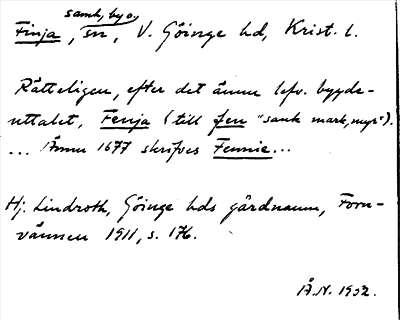 samh, byo,
Finja, sn, V. Göinge hd, Krist. l.
Rätteligen, efter det ännu lefv. bygde-
uttalet, Fenja (till fen "sank mark, myr").
... Ännu 1677 skrifves Fennie...
Hj. Lindroth, Göinge hds gårdnamn, Forn-
vännen 1911, s. 176.
Å.N. 1932.